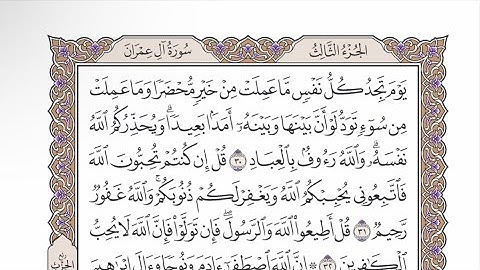 الجزء الثالث
سورة آل عمران
يَوْمَ تَجِدُ كُلُّ نَفْسٍ مَّا عَمِلَتْ مِنْ خَيْرٍ مُّحْضَرًا وَمَا عَمِلَتْ
مِن سُوٓءٍ تَوَدُّ لَوْ أَنَّ بَيْنَهَا وَبَيْنَهُۥٓ أَمَدَۢا بَعِيدًاۗ وَيُحَذِّرُكُمُ ٱللَّهُ
نَفْسَهُۥۗ وَٱللَّهُ رَءُوفُۢ بِٱلْعِبَادِ ٣٠ قُلْ إِن كُنتُمْ تُحِبُّونَ ٱللَّهَ
فَٱتَّبِعُونِى يُحْبِبْكُمُ ٱللَّهُ وَيَغْفِرْ لَكُمْ ذُنُوبَكُمْۗ وَٱللَّهُ غَفُورٌ
رَّحِيمٌ ٣١ قُلْ أَطِيعُوا۟ ٱللَّهَ وَٱلرَّسُولَۖ فَإِن تَوَلَّوْا۟ فَإِنَّ ٱللَّهَ لَا يُحِبُّ
ٱلْكَٰفِرِينَ ٣٢ ۞ إِنَّ ٱللَّهَ ٱصْطَفَىٰٓ ءَادَمَ وَنُوحًا وَءَالَ إِبْرَٰهِيمَ
ربع
الحزب